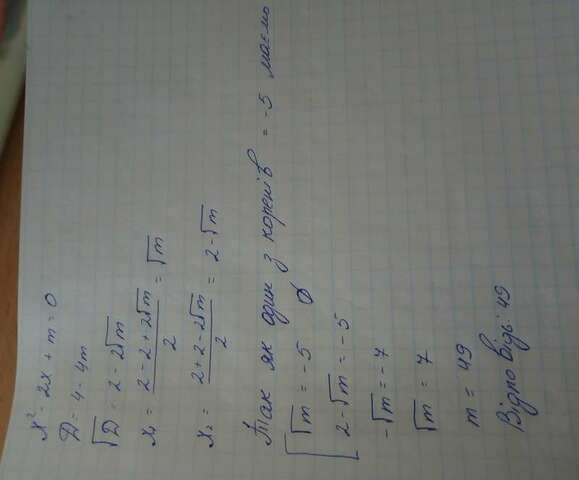 x² - 2x + m = 0
D = 4 - 4m
√D = 2 - 2√m
x₁ = (2 - 2 + 2√m)/2 = √m
x₂ = (2 + 2 - 2√m)/2 = 2 - √m
Так як один з коренів = -5 маємо
[ √m = -5 ∅
2 - √m = -5
-√m = -7
√m = 7
m = 49
Відповідь: 49